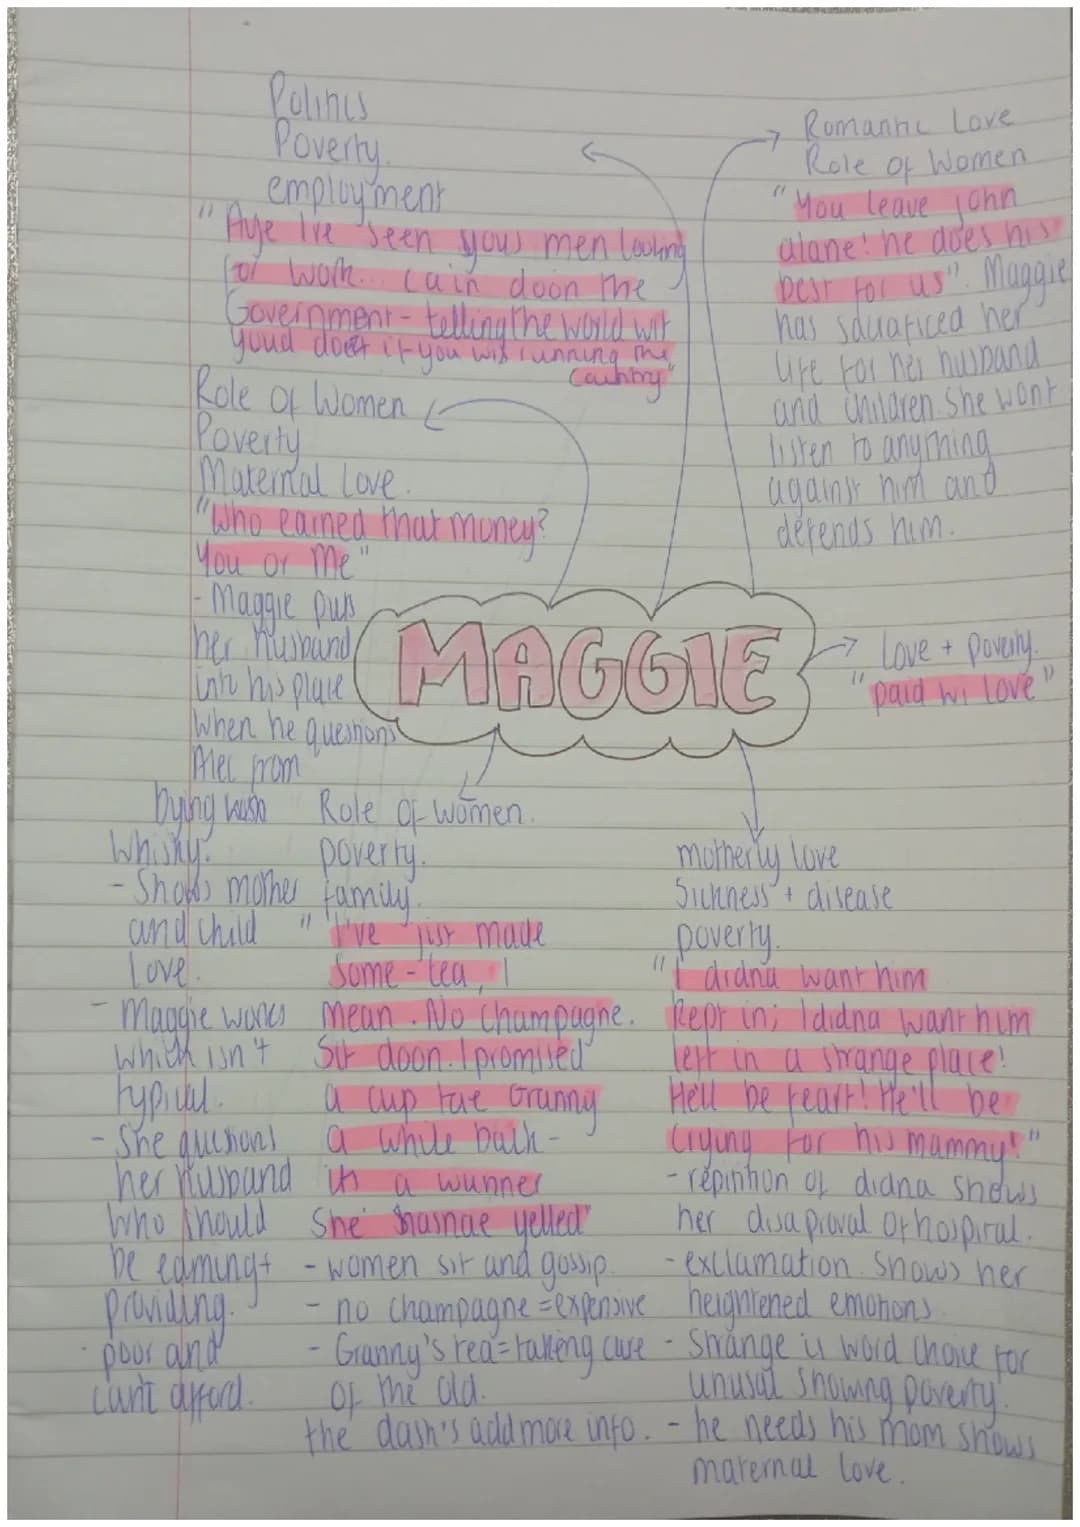 Politics
Poverty.
employment
"Aye I've seen yous men looking
for work... Cain doon the
Government - telling the world wit
youd doet if you wis running the
Country"
Role of Women
Poverty
Maternal Love.
"Who earned that money?
You or Me"
- Maggie puts
her husband
into his place
when he questions
Alec from
bying wash
Whisky.
- Shows mother
and child
love.
- Maggie works
which isn't
typical.
- She questions
her husband
who should
be earning +
providing.
- poor and
can't afford.
Romantic Love
Role of Women
"You leave john
alane! he does his
best for us". Maggie
has sacraficed her
life for her husband
and children. She wont
listen to anything
against him and
defends him.
MAGGIE
Love + poverty.
"paid wi love"
Role of women.
poverty.
family.
"I've just made
some - tea, I
mean. No champagne.
Sit doon. I promised
a cup tae Granny
a while back -
in a wunner
She hasnae yelled"
- women sit and gossip.
- no champagne = expensive
- Granny's tea = taking care
of the old.
the dash's add more info.
motherly love
Sickness + disease
poverty.
"I didna want him
Kept in; I didna want him
left in a strange place!
He'll be feart! He'll be
crying for his mammy!"
- repintion of didna shows
her disaproval of hospital.
- exclamation. shows her
heightened emotions.
- Strange is word choice for
unusal showing poverty.
- he needs his mom shows
maternal love.